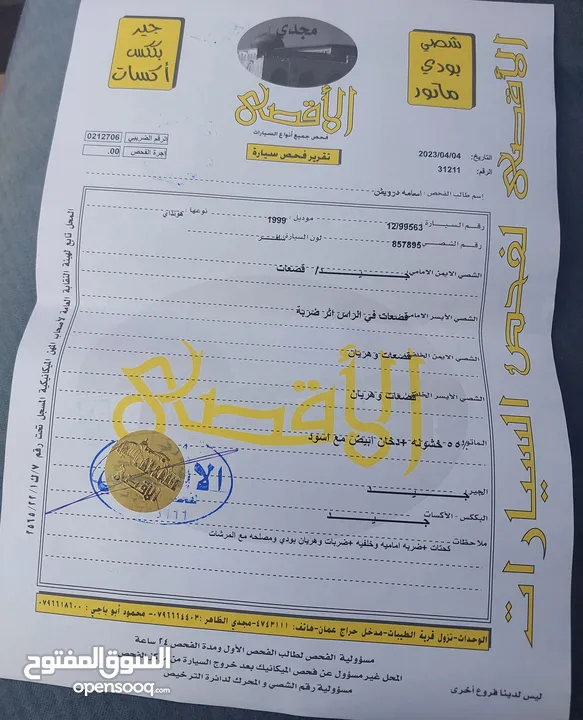 جير
بكس
أكسات
مجدي
الأقصى
فحص جميع أنواع السيارات
تقرير فحص سيارة
شصي
بودي
ماتور
الأقصى لفحص السيارات
الرقم الضريبي 0212706
أجرة الفحص .00
التاريخ: 2023/04/04
الرقم: 31211
إسم طالب الفحص: اسامه درويش
رقم السيارة 12/99563 موديل 1999 نوعها هونداي
رقم الشصي 857895 لون السيارة
الشصي الأيمن الأمامي جيد/ قضعات
الشصي الأيسر الأمامي قضعات في الراس إثر ضربة
الشصي الأيمن الخلفي قضعات وهريان
الشصي الأيسر الخلفي قضعات وهريان
الماتور 55% خشونه +دخان ابيض مع اسود
الجير جيد
البكس - الأكسات جيد
ملاحظات كحتات +ضربه اماميه وخلفيه +ضربات وهريان بودي ومصلحه مع المرشات
الأقصى
المحل تابع لهيئة النقابة العامة لأصحاب المهن الميكانيكية المسجل تحت رقم ٧/ك١/٢٢/٢٥٦٥
الوحدات-نزول قرية الطيبات-مدخل حراج عمان-هاتف: ٤٧٤٣١١١-مجدي الظاهر: ٠٧٩٦٦٦٤٤٠٣- محمود أبو ياجي: ٠٧٩٦٦١٨٦٠٠
مسؤولية الفحص لطالب الفحص الأول ومدة الفحص ٢٤ ساعة
المحل غير مسؤول عن فحص الميكانيك بعد خروج السيارة من الفحص
مسؤولية رقم الشصي و المحرك لدائرة الترخيص
ليس لدينا فروع أخرى
السوق المفتوح
opensooq.com